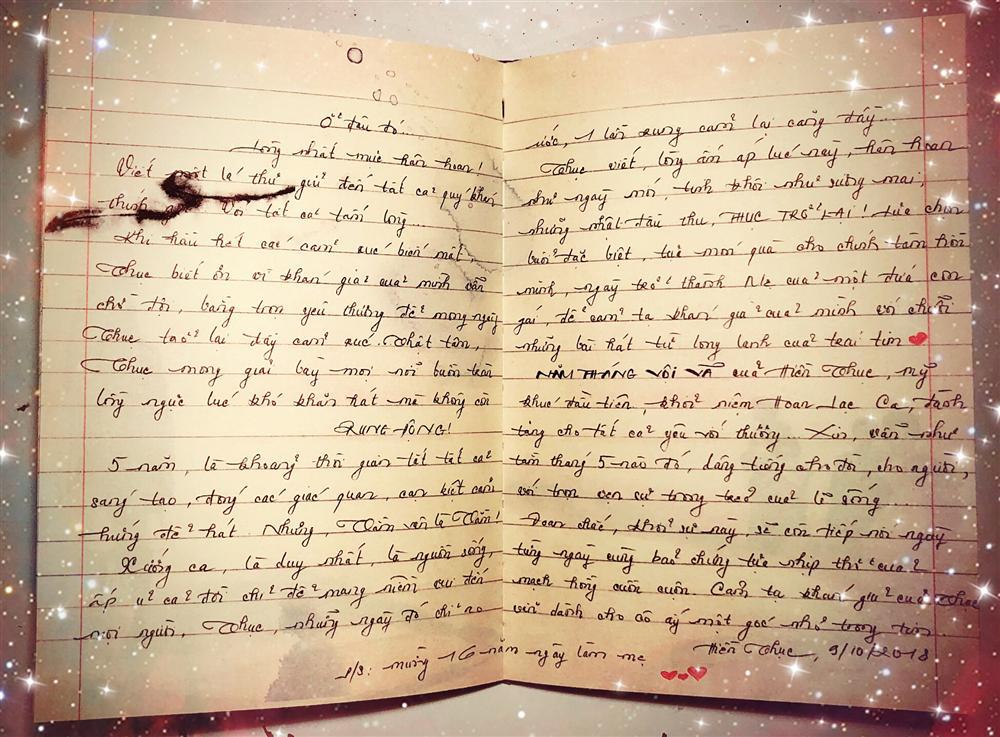 Ở đâu đó...
Lòng nhất mực hân hoan!
Viết một lá thư gửi đến tất cả quý khán
thính giả Với tất cả tấm lòng...
Khi hầu hết các cảm xúc biến mất,
Thục biết ơn vì khán giả của mình vẫn
chờ đợi, bằng trọn yêu thương để mong ngày
Thục trở lại đầy cảm xúc. Thật tâm,
Thục mong giải bày mọi nỗi buồn trên
lồng ngực lúc khó khăn hát mà không còn
RUNG ĐỘNG!
5 năm, là khoảng thời gian tắt tất cả
sáng tạo, đóng các giác quan, cạn kiệt cảm
hứng để hát. Nhưng, Tằm vẫn là Tằm!
Xướng ca, là duy nhất, là nguồn sống,
ấp ủ cả đời chỉ để mang niềm vui đến
mọi người, Thục, những ngày đó chỉ mơ
ước, 1 lần rung cảm lại căng đầy...
Thục viết, lòng ấm áp lúc này, hân hoan
như ngày mới, tinh khôi như sương mai,
những nhật đầu thu, THỤC TRỞ LẠI! Lựa chọn
buổi đặc biệt, tự món quà cho chính tâm hồn
mình, ngày trở thành Mẹ của một đứa con
gái, để cảm tạ khán giả của mình với chuỗi
những bài hát từ long lanh của trái tim
NĂM THÁNG VỘI VÃ của Hiền Thục, mỹ
khúc đầu tiên, khởi niệm Hoan Lạc Ca, dành
tặng cho tất cả yêu với thương... Xin, vẫn như
tằm tháng 5 nào đó, dâng tiếng cho đời, cho người,
với trọn vẹn sự trong trẻo của lẽ sống...
Đoan chắc, khởi sự này, sẽ còn tiếp nối ngày
từng ngày cùng bao chứng tự nhịp thở của
mạch hồng cuồn cuộn. Cảm tạ khán giả của Thục
vẫn dành cho cô ấy một góc nhỏ trong tim.
Hiền Thục, 9/10/2018
T/B: mừng 16 năm ngày làm mẹ